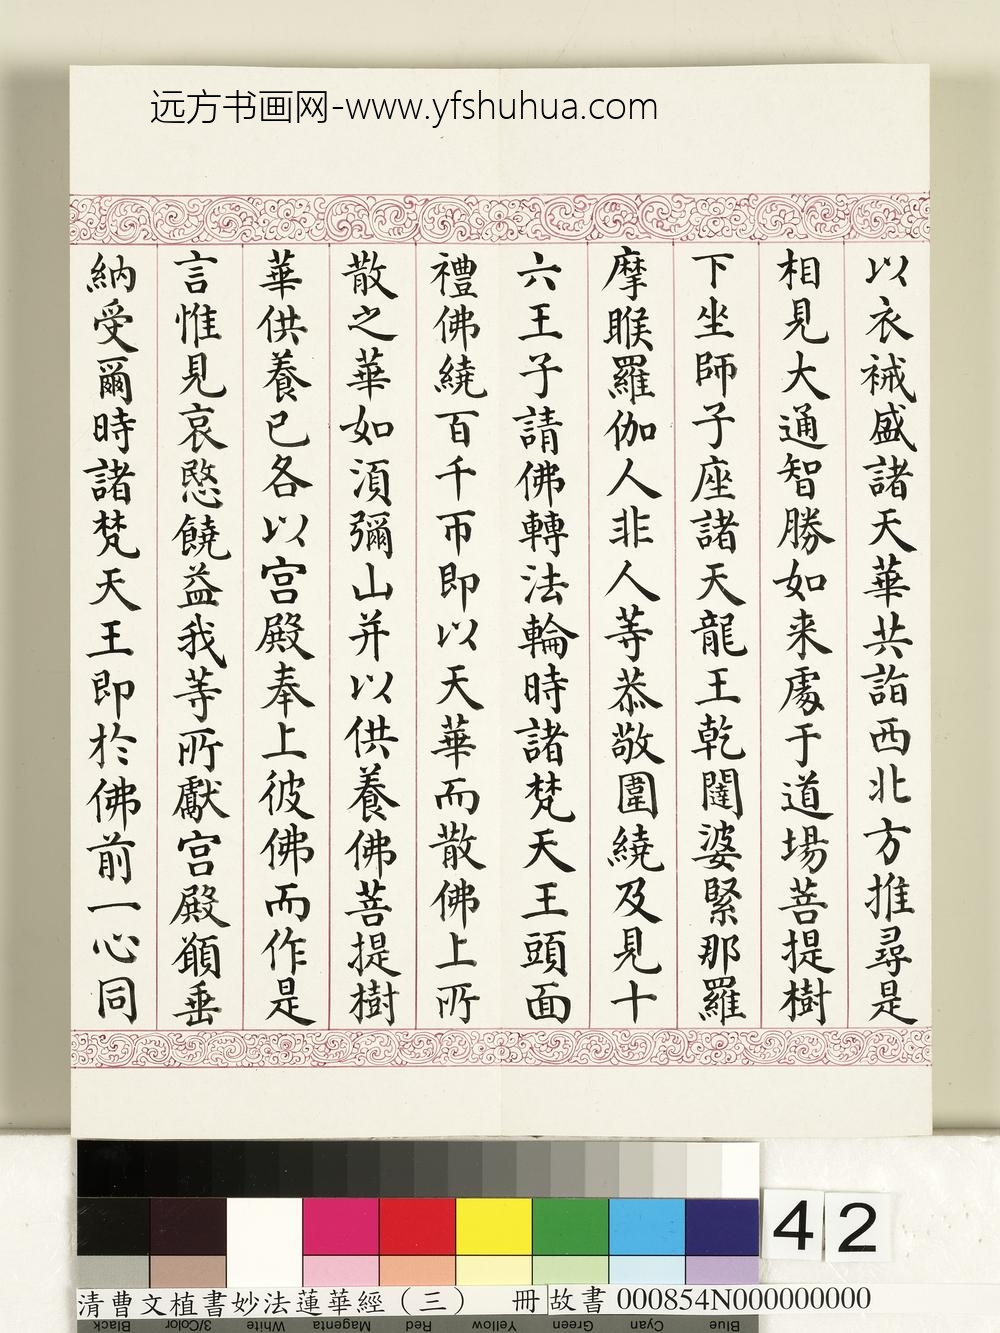 远方书画网-www.yfshuhua.com
以衣裓盛諸天華共詣西北方推尋是
相見大通智勝如来處于道場菩提樹
下坐師子座諸天龍王乾闥婆緊那羅
摩睺羅伽人非人等恭敬圍繞及見十
六王子請佛轉法輪時諸梵天王頭面
禮佛繞百千帀即以天華而散佛上所
散之華如湏彌山并以供養佛菩提樹
華供養已各以宫殿奉上彼佛而作是
言惟見哀愍饒益我等所獻宫殿願垂
納受爾時諸梵天王即於佛前一心同
42
清曹文植書妙法蓮華經（三） 冊 故書 000854N000000000
Black 3/Color White Magenta Red Yellow Green Cyan Blue